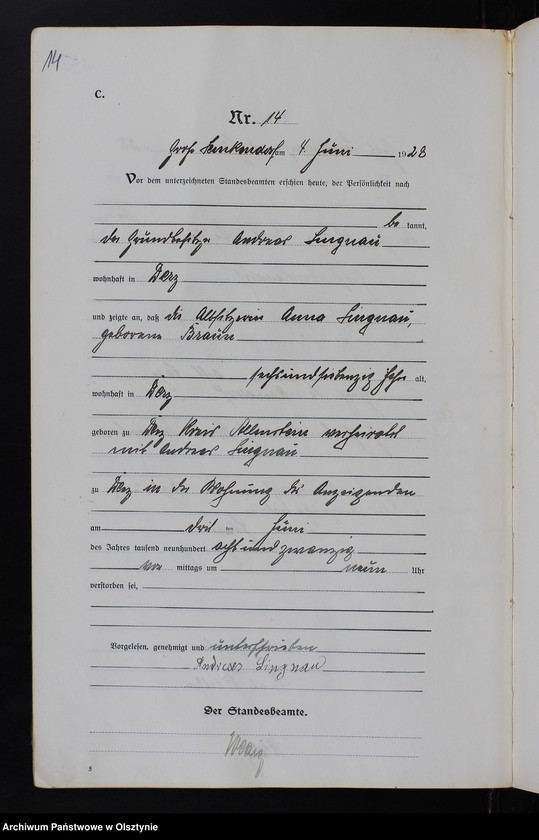 14
C.
Nr. 14
Groß am 4. Juni 1928
Vor dem unterzeichneten Standesbeamten erschien heute, der Persönlichkeit nach
be kannt,
der Grundbesitzer Andreas Lingnau
wohnhaft in Derz
und zeigte an, daß die Altsitzerin Anna Lingnau,
geborene Braun
sechsundsiebenzig Jahre alt,
wohnhaft in Derz
geboren zu Derz Kreis Allenstein verheiratet
mit Andreas Lingnau
zu Derz in der Wohnung des Anzeigenden
am drei ten Juni
des Jahres tausend neunhundert acht und zwanzig
vor mittags um neun Uhr
verstorben sei,
Vorgelesen, genehmigt und unterschrieben
Andreas Lingnau
Der Standesbeamte.
5
Archiwum Państwowe w Olsztynie